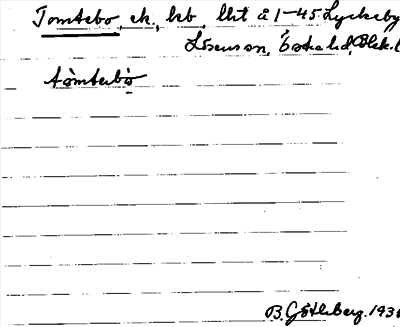 Tomtebo, ek., kb. lht å 1-45 Lyckeby
Lösensn, Östra hd, Blek. l
tòmtebò
B. Götleberg. 193